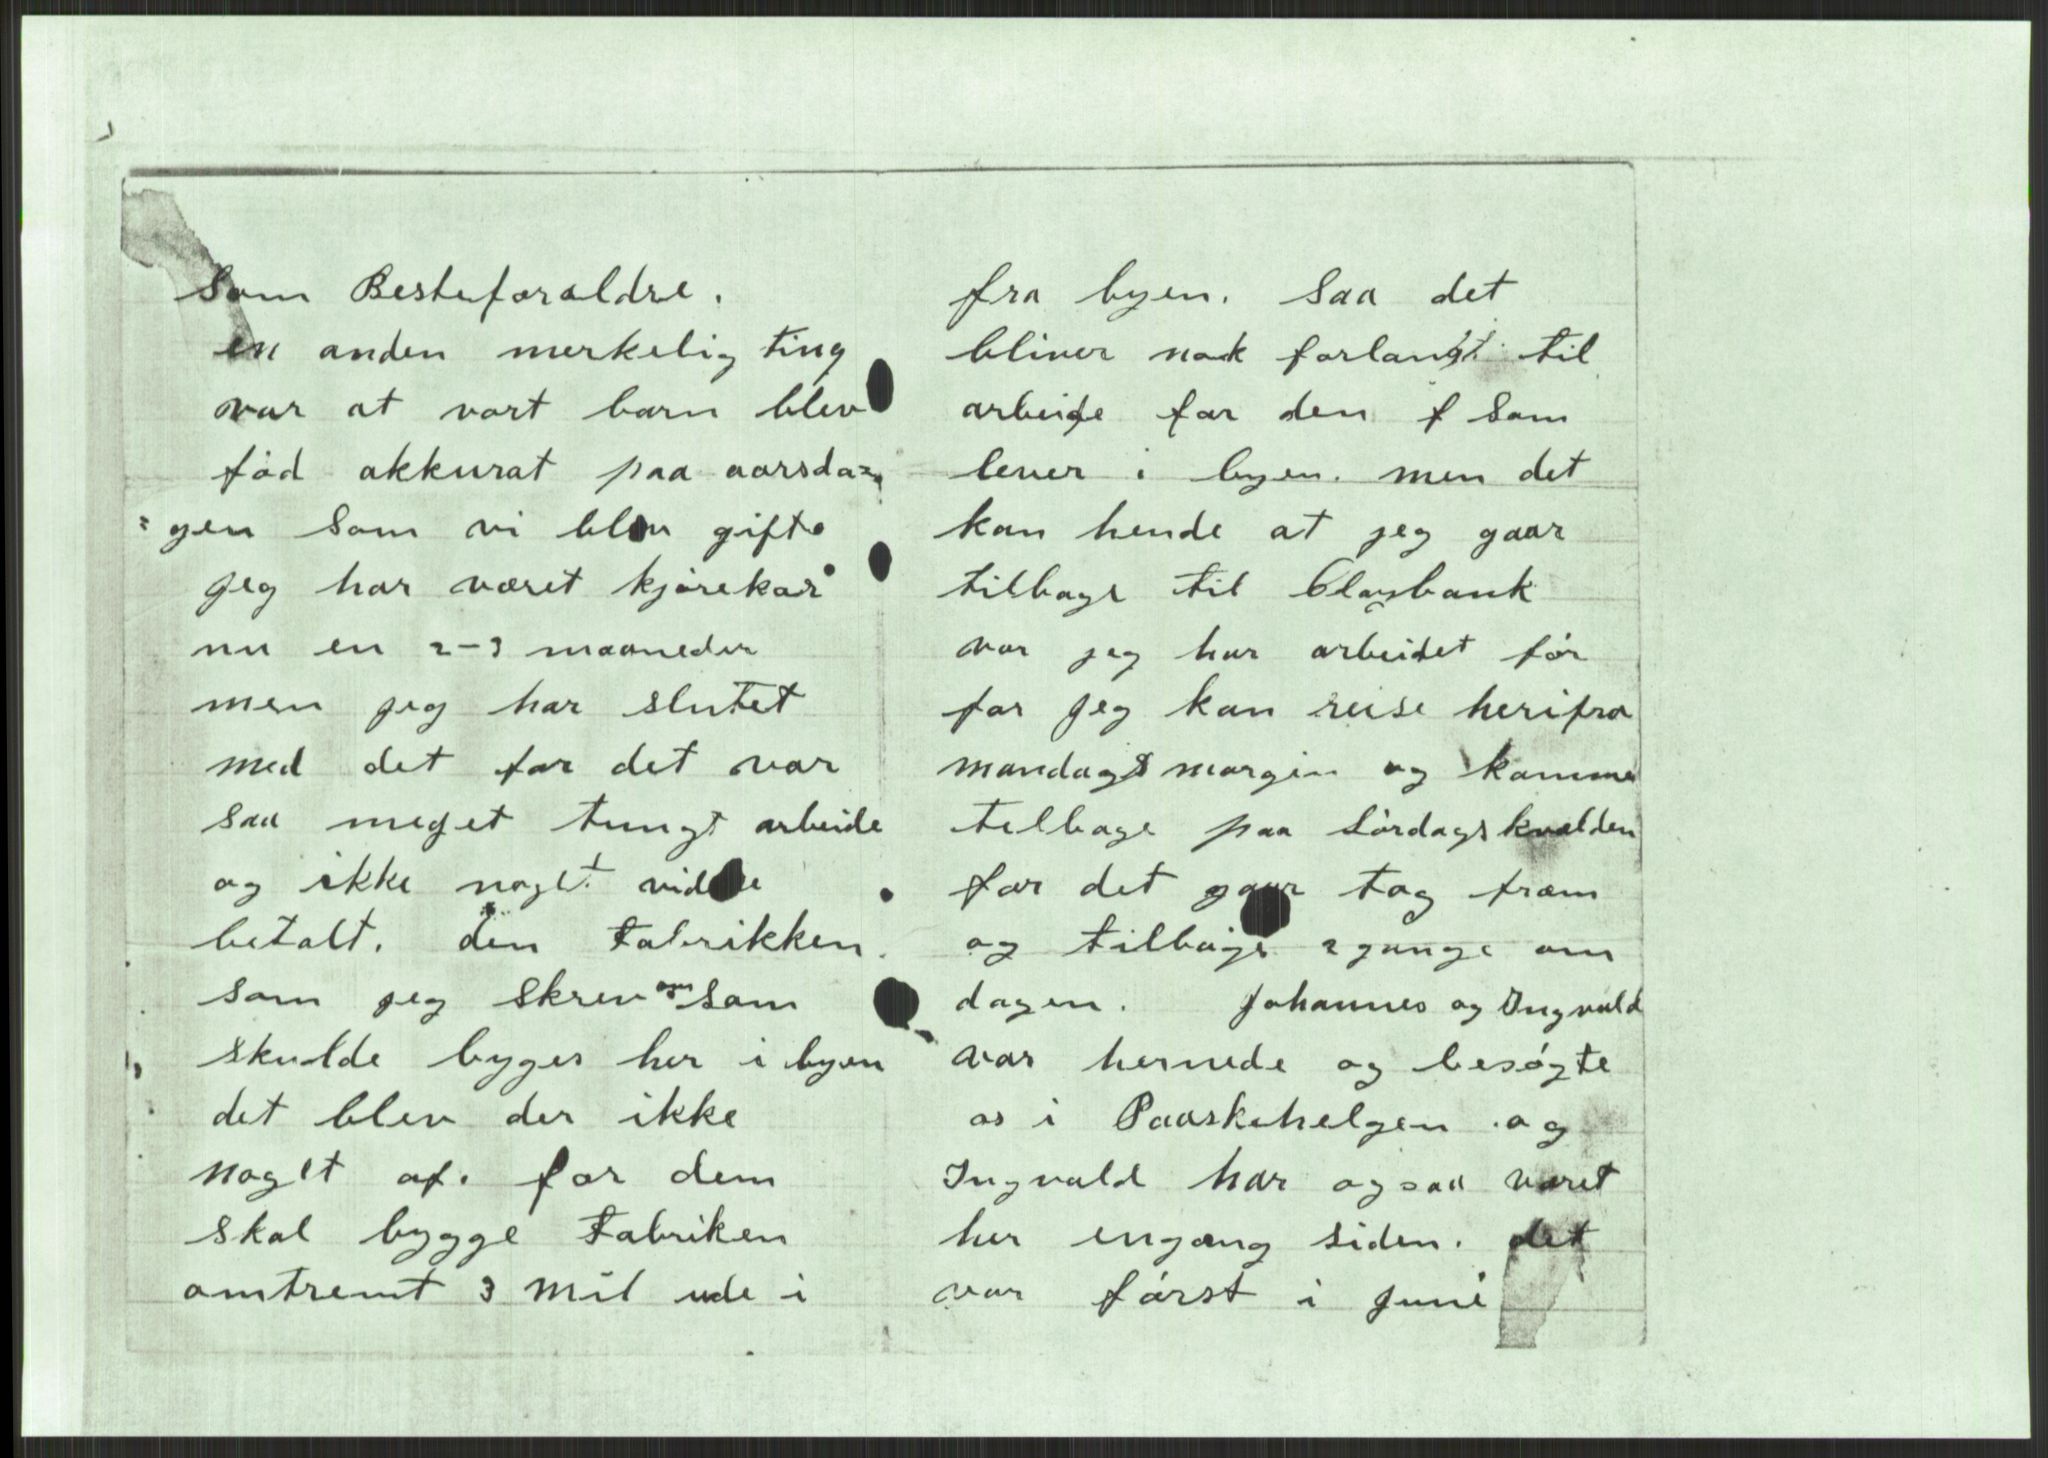 som Besteforældre.
en anden merkelig ting
var at vort barn blev
fød akkurat paa aarsda=
=gen som vi blev gifte
jeg har været kjørekar
nu en 2-3 maaneder
men jeg har slutet
med det for det var
saa meget tungt arbeide
og ikke noget videre
betalt. den Fabrikken
som jeg skrev om som
skulde byges her i byen
det blev der ikke
noget af. for dem
skal bygge Fabriken
omtremt 3 mil ude i
fra byen. saa det
bliver nok forlangt til
arbeide for den som
lever i byen. men det
kan hende at jeg gaar
tilbage til Claybank
vor jeg har arbeidet før
for jeg kan reise herifra
mandags morgin og komme
telbage paa Lørdags kvælden
for det gaar tog fræm
og tilbage 2 gange om
dagen. Johannes og Ingvald
var hernede og besøgte
os i Paaskehelgen og
Ingvald har ogsaa været
her engang siden. det
var først i Juni